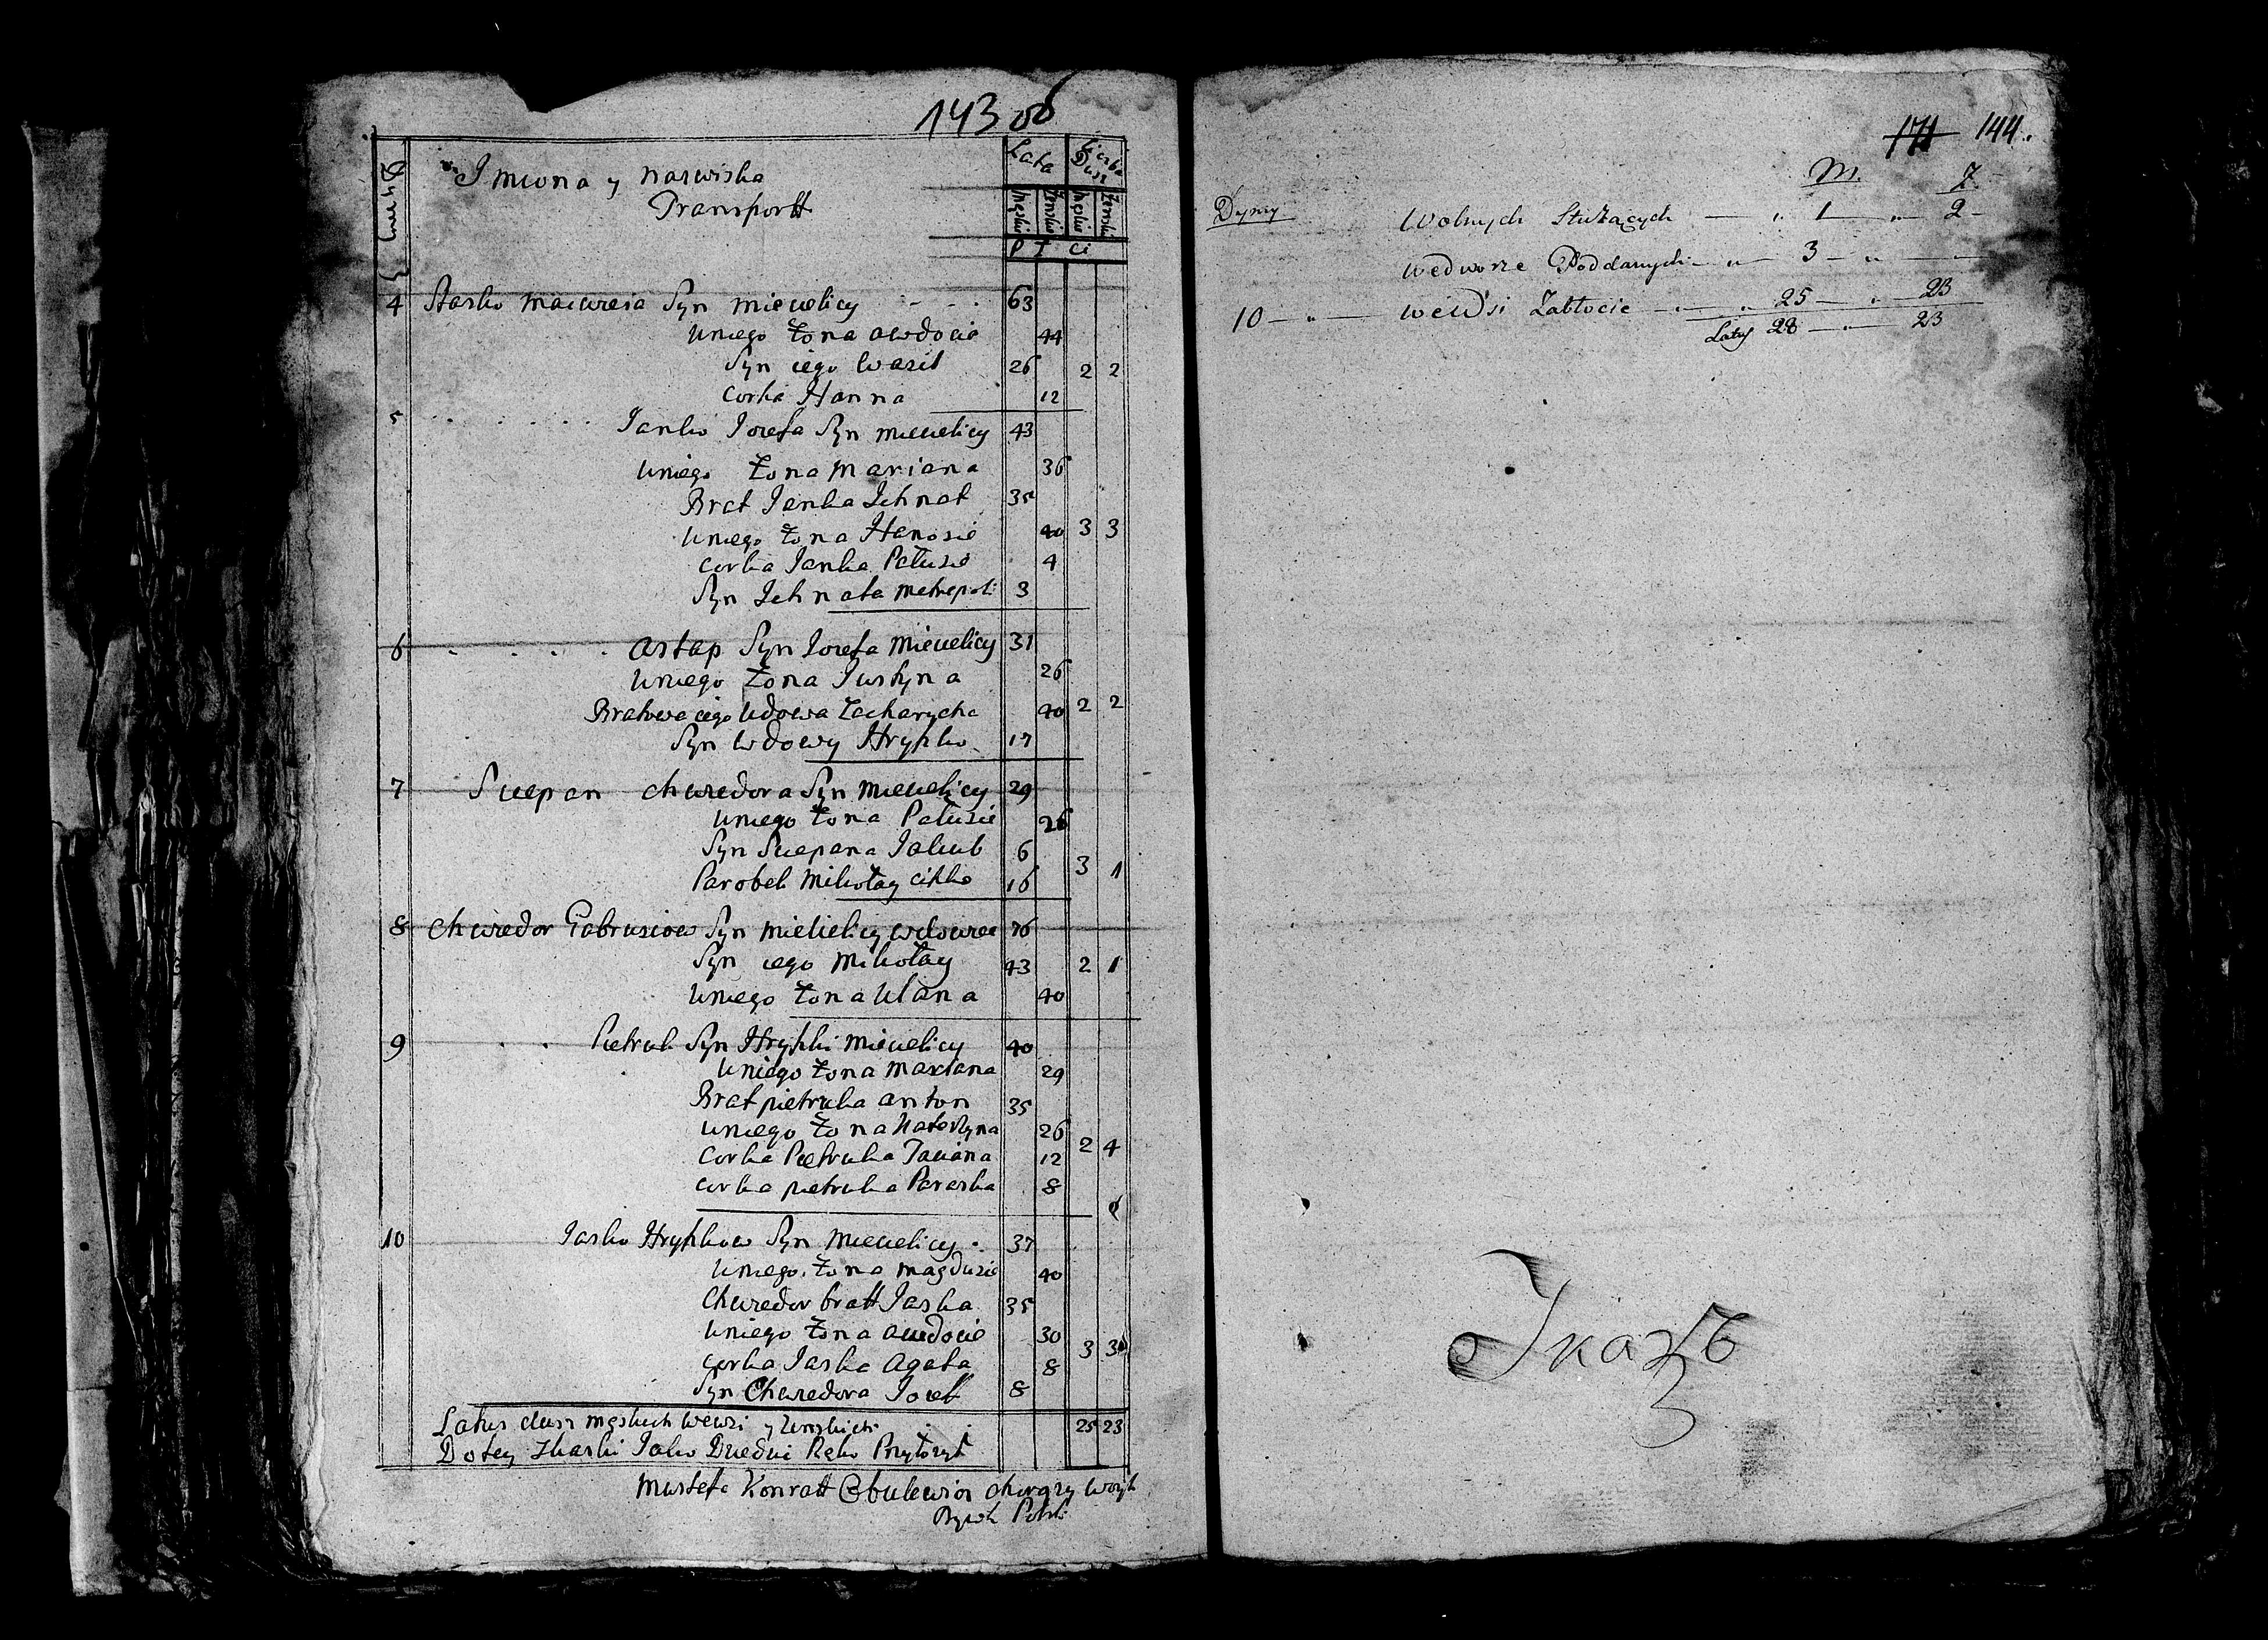 143 об
Dymy
Imiona y nazwiska
Transportt
Lata
Liczba Dusz
Męskie Żenskie Męskie Żenskie
P ł ci
4 Stasko Macieeja Syn Mieuelicy 63
Uniego Żona Awdocia 44
Syn iego Wasil 26 2 2
Corka Hanna 12
5 Janko Jozefa Syn Mieuelicy 43
Uniego Żona Mariana 36
Brat Janka Ichnat 35
Uniego Żona Hanosie 40 3 3
Corka Janka Palusie 4
Syn Ichnata Metrepoli 3
6 Astap Syn Jozefa Mieuelicy 31
Uniego Żona Justyna 26
Bratowa iego Wdowa Zacharycha 40 2 2
Syn Wdowy Hrysko 17
7 Sciepan Chwedora Syn Mieuelicy 29
Uniego Żona Palusie 26
Syn Sciepana Jakub 6
Parobek Mikołay Cihko 16 3 1
8 Chwedor Gabrusiow Syn Mieuelicy Wdowiec 76
Syn iego Mikołay 43 2 1
Uniego Żona Ulana 40
9 Pietruk Syn Hryski Mieuelicy 40
Uniego Żona Mariana 29
Brat pietruka Anton 35
Uniego Żona Katerzyna 26
Corka Pietruka Taciana 12 2 4
Corka pietruka Paraska 8
10 Jasko Hryskow Syn Mieuelicy 37
Uniego Żona Magdusie 40
Chwedor bratt Jaska 35
Uniego Żona Awdocie 30
Corka Jaska Agata 8 3 3
Syn Chwedora Jozef 8
Latus dusz męskich Wewsi y Zenskich 25 23
Dotey Skaski Jako Dziedzic Rękę Przyłożył
Mustafa Konratt Chorąży Woysk
Bywch Polski
171 144.
M. Z.
Dymy Wolnych Służących — „ 1 — „ 2 —
Wedworze Poddanych — „ 3 — „ —
10 — „ — WeWsi Zabłocie — „ 25 — „ 23
Latus 28 — „ — 23